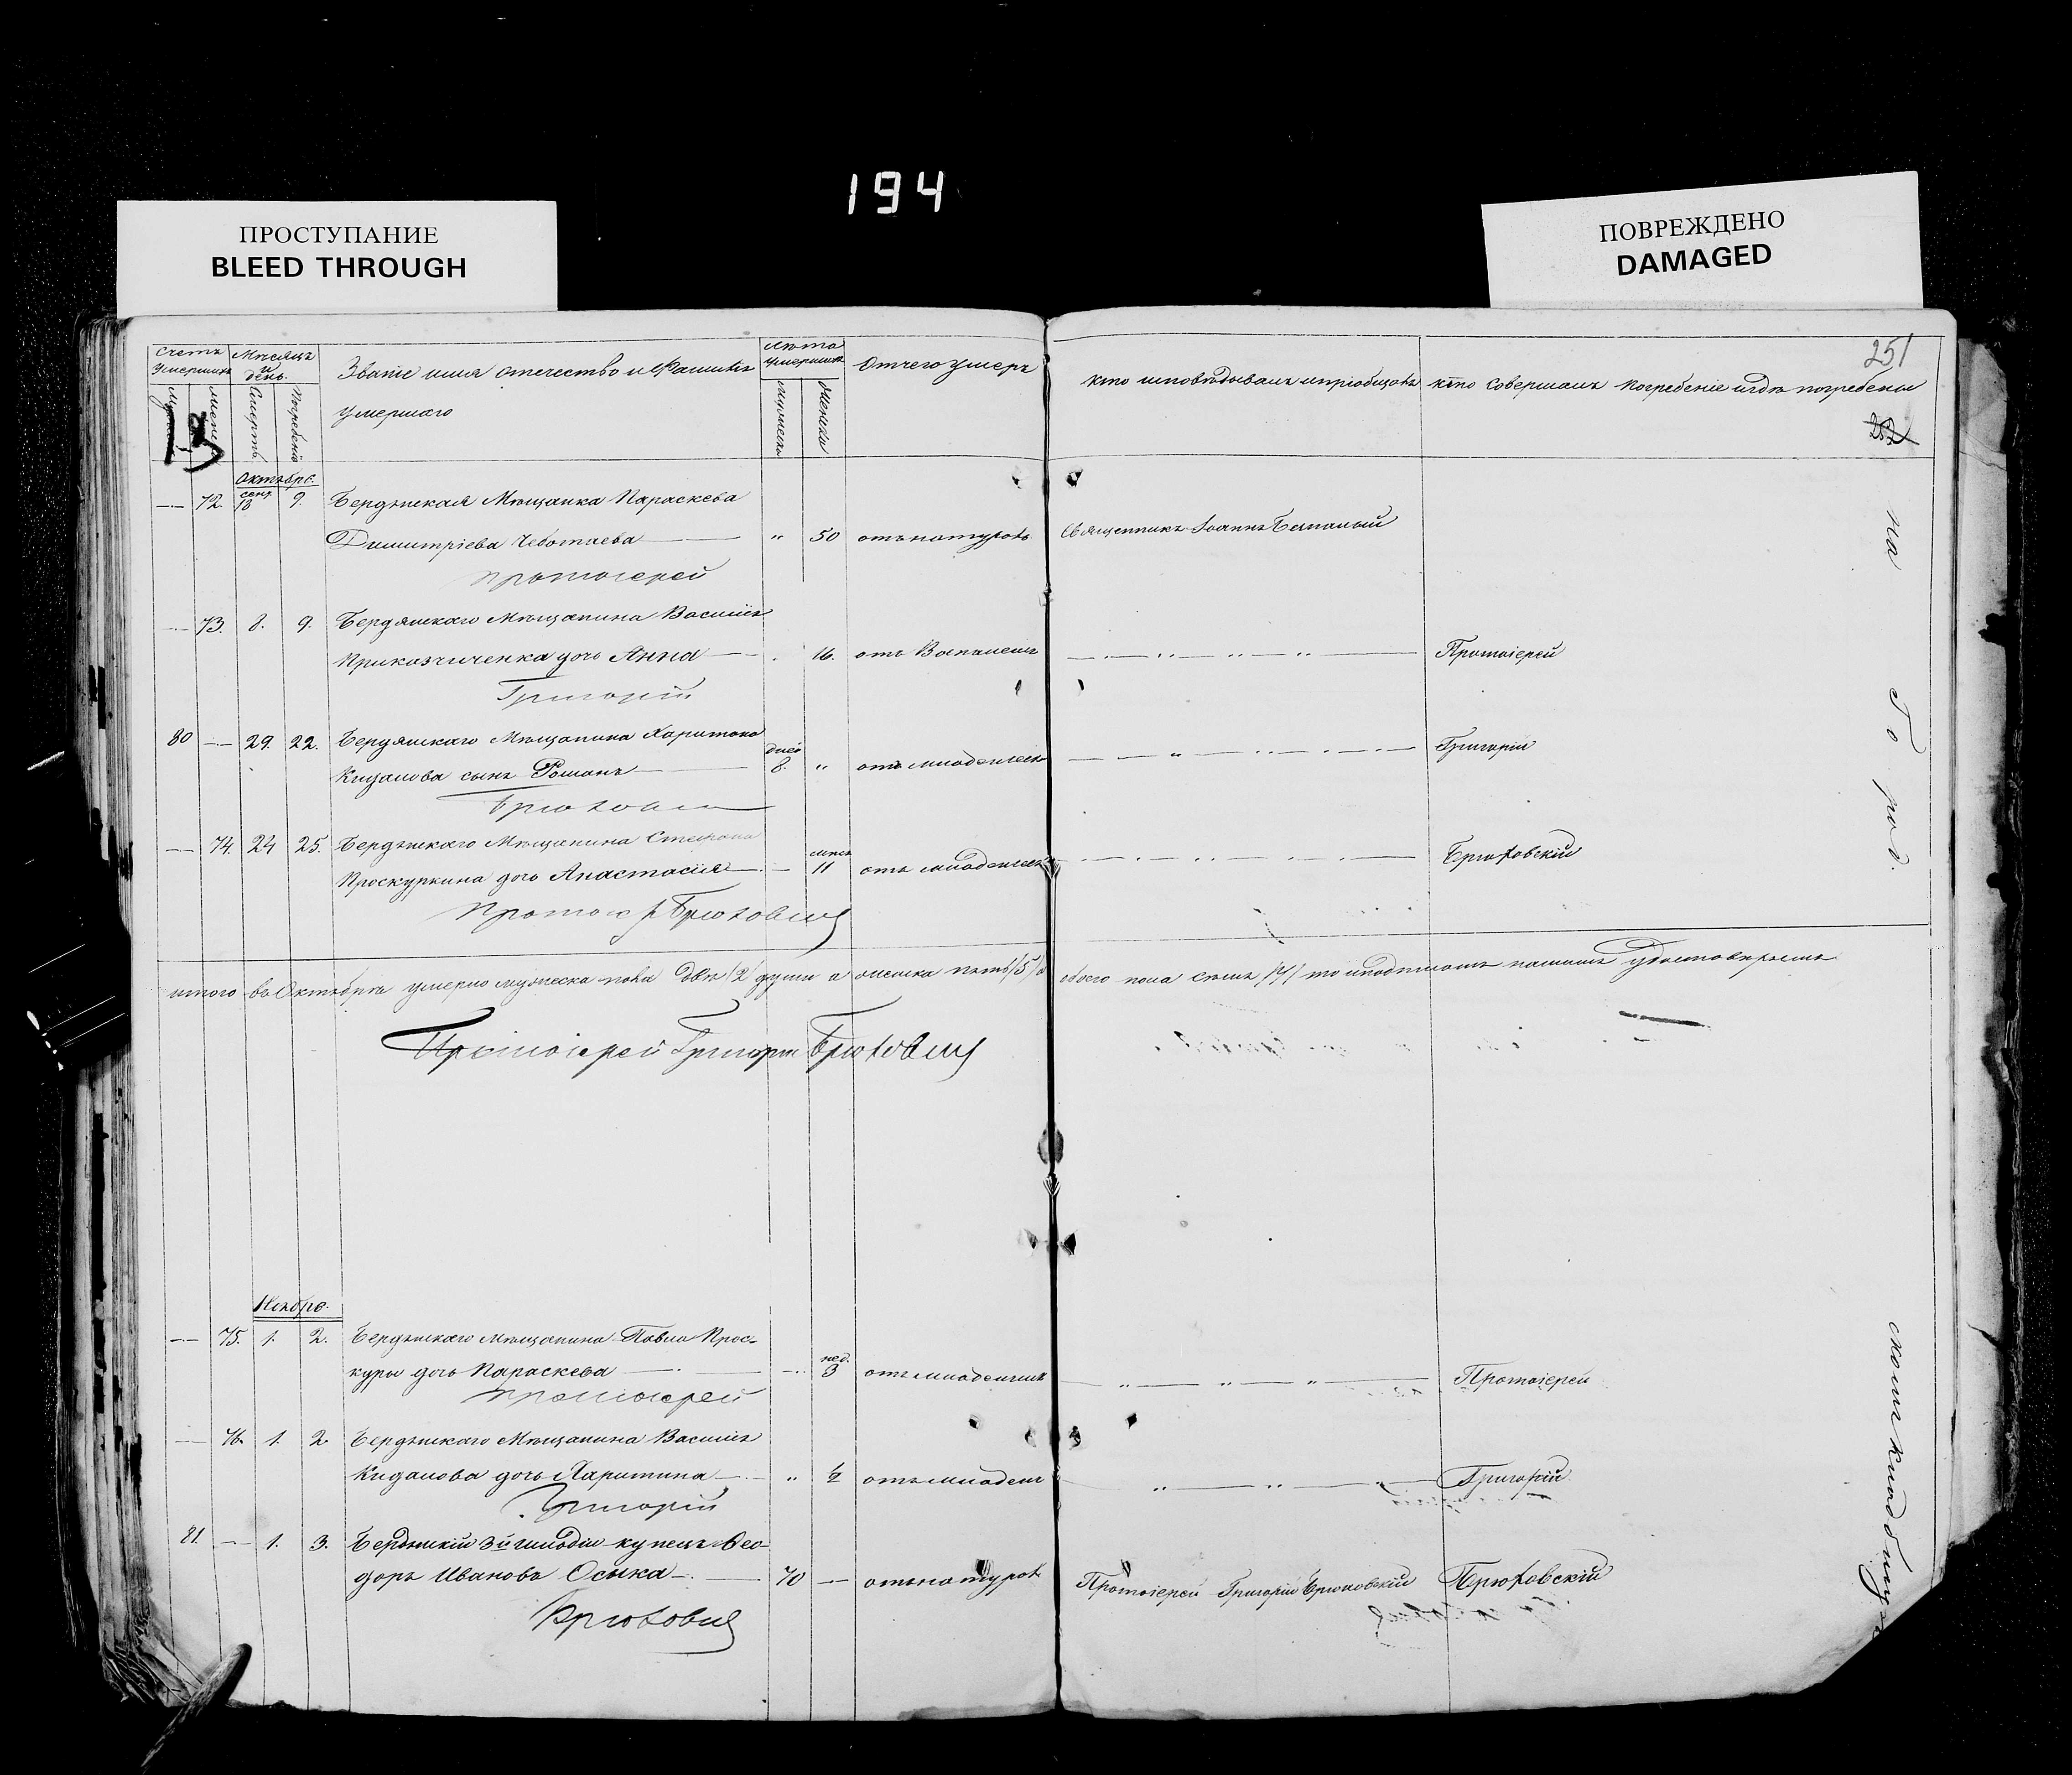 194
ПРОСТУПАНИЕ
BLEED THROUGH
ПОВРЕЖДЕНО
DAMAGED
251
Счетъ умершихъ
Мѣсяцъ и день.
Званіе имя отечество и Фамилія
умершаго
Лѣта умершихъ
Отчего умеръ
кто исповѣдывалъ и пріобщалъ
кто совершалъ погребеніе и гдѣ погребены
Женск
Смерть
Погребенія
Мужеска
Женска
Октября.
— 72. сент. 18 9. Бердянская Мѣщанка Параскева
Димитріева Чеботаева — " 50 отъ натуров Священникъ Іоаннъ
Протоіерей
— 73. 8. 9. Бердянскаго Мѣщанина Василія
Приказчиченка дочь Анна — 16. отъ Воспален — Протоіерей
Григорій
80 — 29. 22. Бердянскаго Мѣщанина Харитона
Кидалова сынъ Романъ — дней 8. " отъ младенческ — Григорій
Брюховск
— 74. 24 25. Бердянскаго Мѣщанина Стефана
Проскуркина дочь Анастасія — мѣся 11 отъ младенческ — Брюховскій
на Город
скомъ кладбищ
итого въ Октябрѣ умерло мужеска пола двѣ /2/ души а женска пять /5/ а обоего пола семь /7/ то и подписомъ нашимъ удостовѣряемъ
Протоіерей Григорій Брюховскій
Ноября.
— 75. 1. 2. Бердянскаго Мѣщанина Павла Прос-
куры дочь Параскева — нед. 3 отъ младенчик — Протоіерей
Протоіерей
— 76. 1. 2 Бердянскаго Мѣщанина Василія
Кидалова дочь Харитина — " ½ отъ младен — Григорій
Григорій
81. — 1. 3. Бердянскій 3й гильдіи купецъ Ѳео-
доръ Ивановъ Осыка — 70 — отъ натуров Протоіерей Григорій Брюховскій Брюховскій
Брюховскій